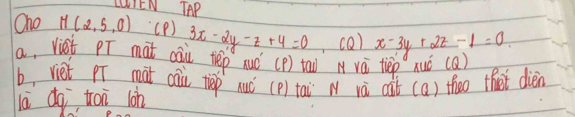 LUYỆN TẬP
Cho M(2,5,0) (P) 3x - 2y - z + 4 = 0, (Q) x - 3y + 2z - 1 = 0.
a, viết PT mặt cầu tiếp xúc (P) tại M và tiếp xúc (Q)
b, viết PT mặt cầu tiếp xúc (P) tại M và cắt (Q) theo thiết diện
là đg tròn lớn